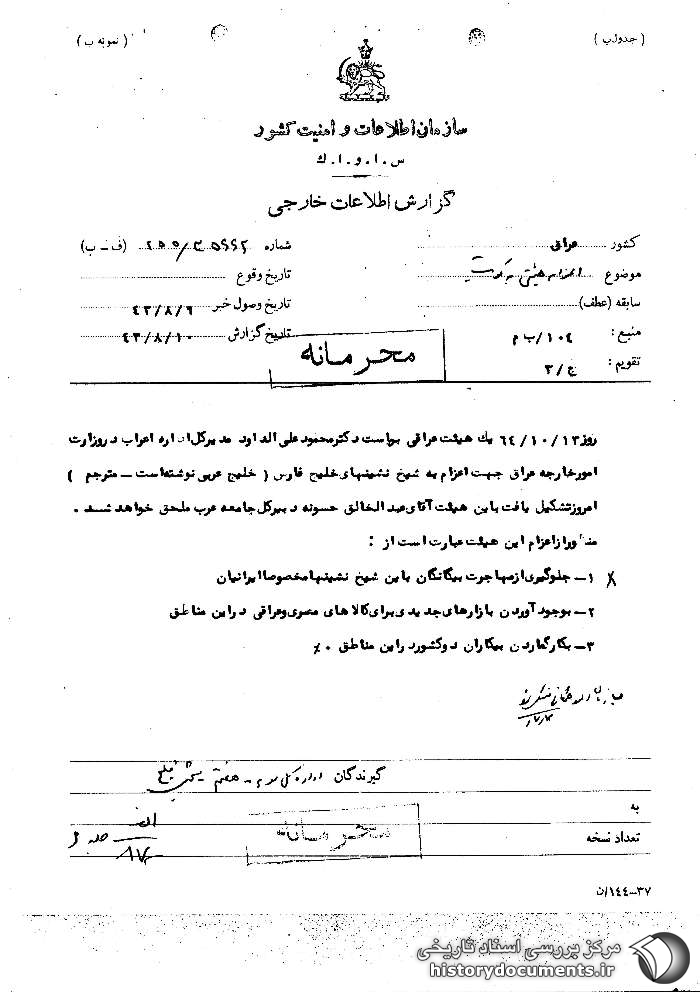 (جدول ب)
(نمونه ب)
سازمان اطلاعات و امنیت کشور
س . ا . و . ا . ك
گزارش اطلاعات خارجی
کشور عراق
شماره (ف - ب)
موضوع اعزام هیئتی به کویت
تاریخ وقوع
سابقه (عطف)
تاریخ وصول خبر ٤٣/٨/٦
منبع : ١٠٤/ب م
تاریخ گزارش ٤٣/٨/١٠
محرمانه
تقویم : ج/٣
روز ٦٤/١٠/١٣ یك هیئت عراقی بریاست دکتر محمود علی الداود مدیرکل اداره اعراب در وزارت
امور خارجه عراق جهت اعزام به شیخ نشینهای خلیج فارس ( خلیج عربی نوشته است - مترجم )
امروز تشکیل یافت باین هیئت آقای عبدالخالق حسونه دبیرکل جامعه عرب ملحق خواهد شد .
منظور از اعزام این هیئت عبارت است از :
١- جلوگیری از مهاجرت بیگانگان باین شیخ نشینها مخصوصا ایرانیان
٢- بوجود آوردن بازارهای جدیدی برای کالاهای مصری و عراقی در این مناطق
٣- بکار گماردن بیکاران دو کشور در این مناطق ٠٪
گیرندگان اداره کل سوم - هفتم بخش خلیج
به
محرمانه
تعداد نسخه
٣٧-١٤٤/ن
مرکز بررسی اسناد تاریخی
historydocuments.ir